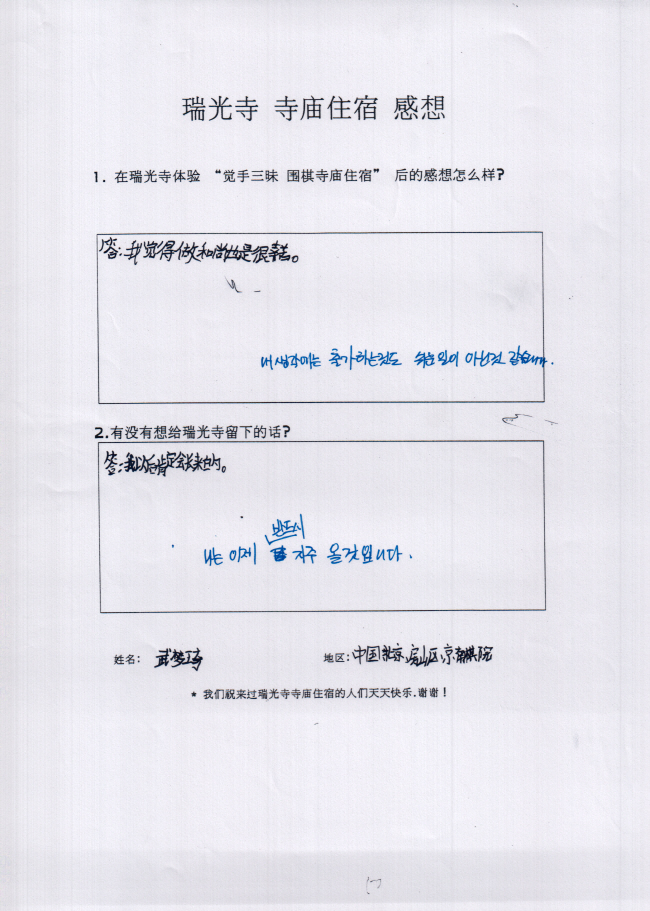 瑞光寺 寺庙住宿 感想
1. 在瑞光寺体验 “觉手三昧 围棋寺庙住宿” 后的感想怎么样?
答:我觉得做和尚也是很辛苦。
내생각에는 출가하는것도 쉬운일이 아닌것 같습니다.
2.有没有想给瑞光寺留下的话?
答:我以后肯定会长来的。
반드시
나는 이제 자주 올것입니다.
姓名: 武梦琦
地区:中国北京,房山区,京麒棋院
* 我们祝来过瑞光寺寺庙住宿的人们天天快乐.谢谢!